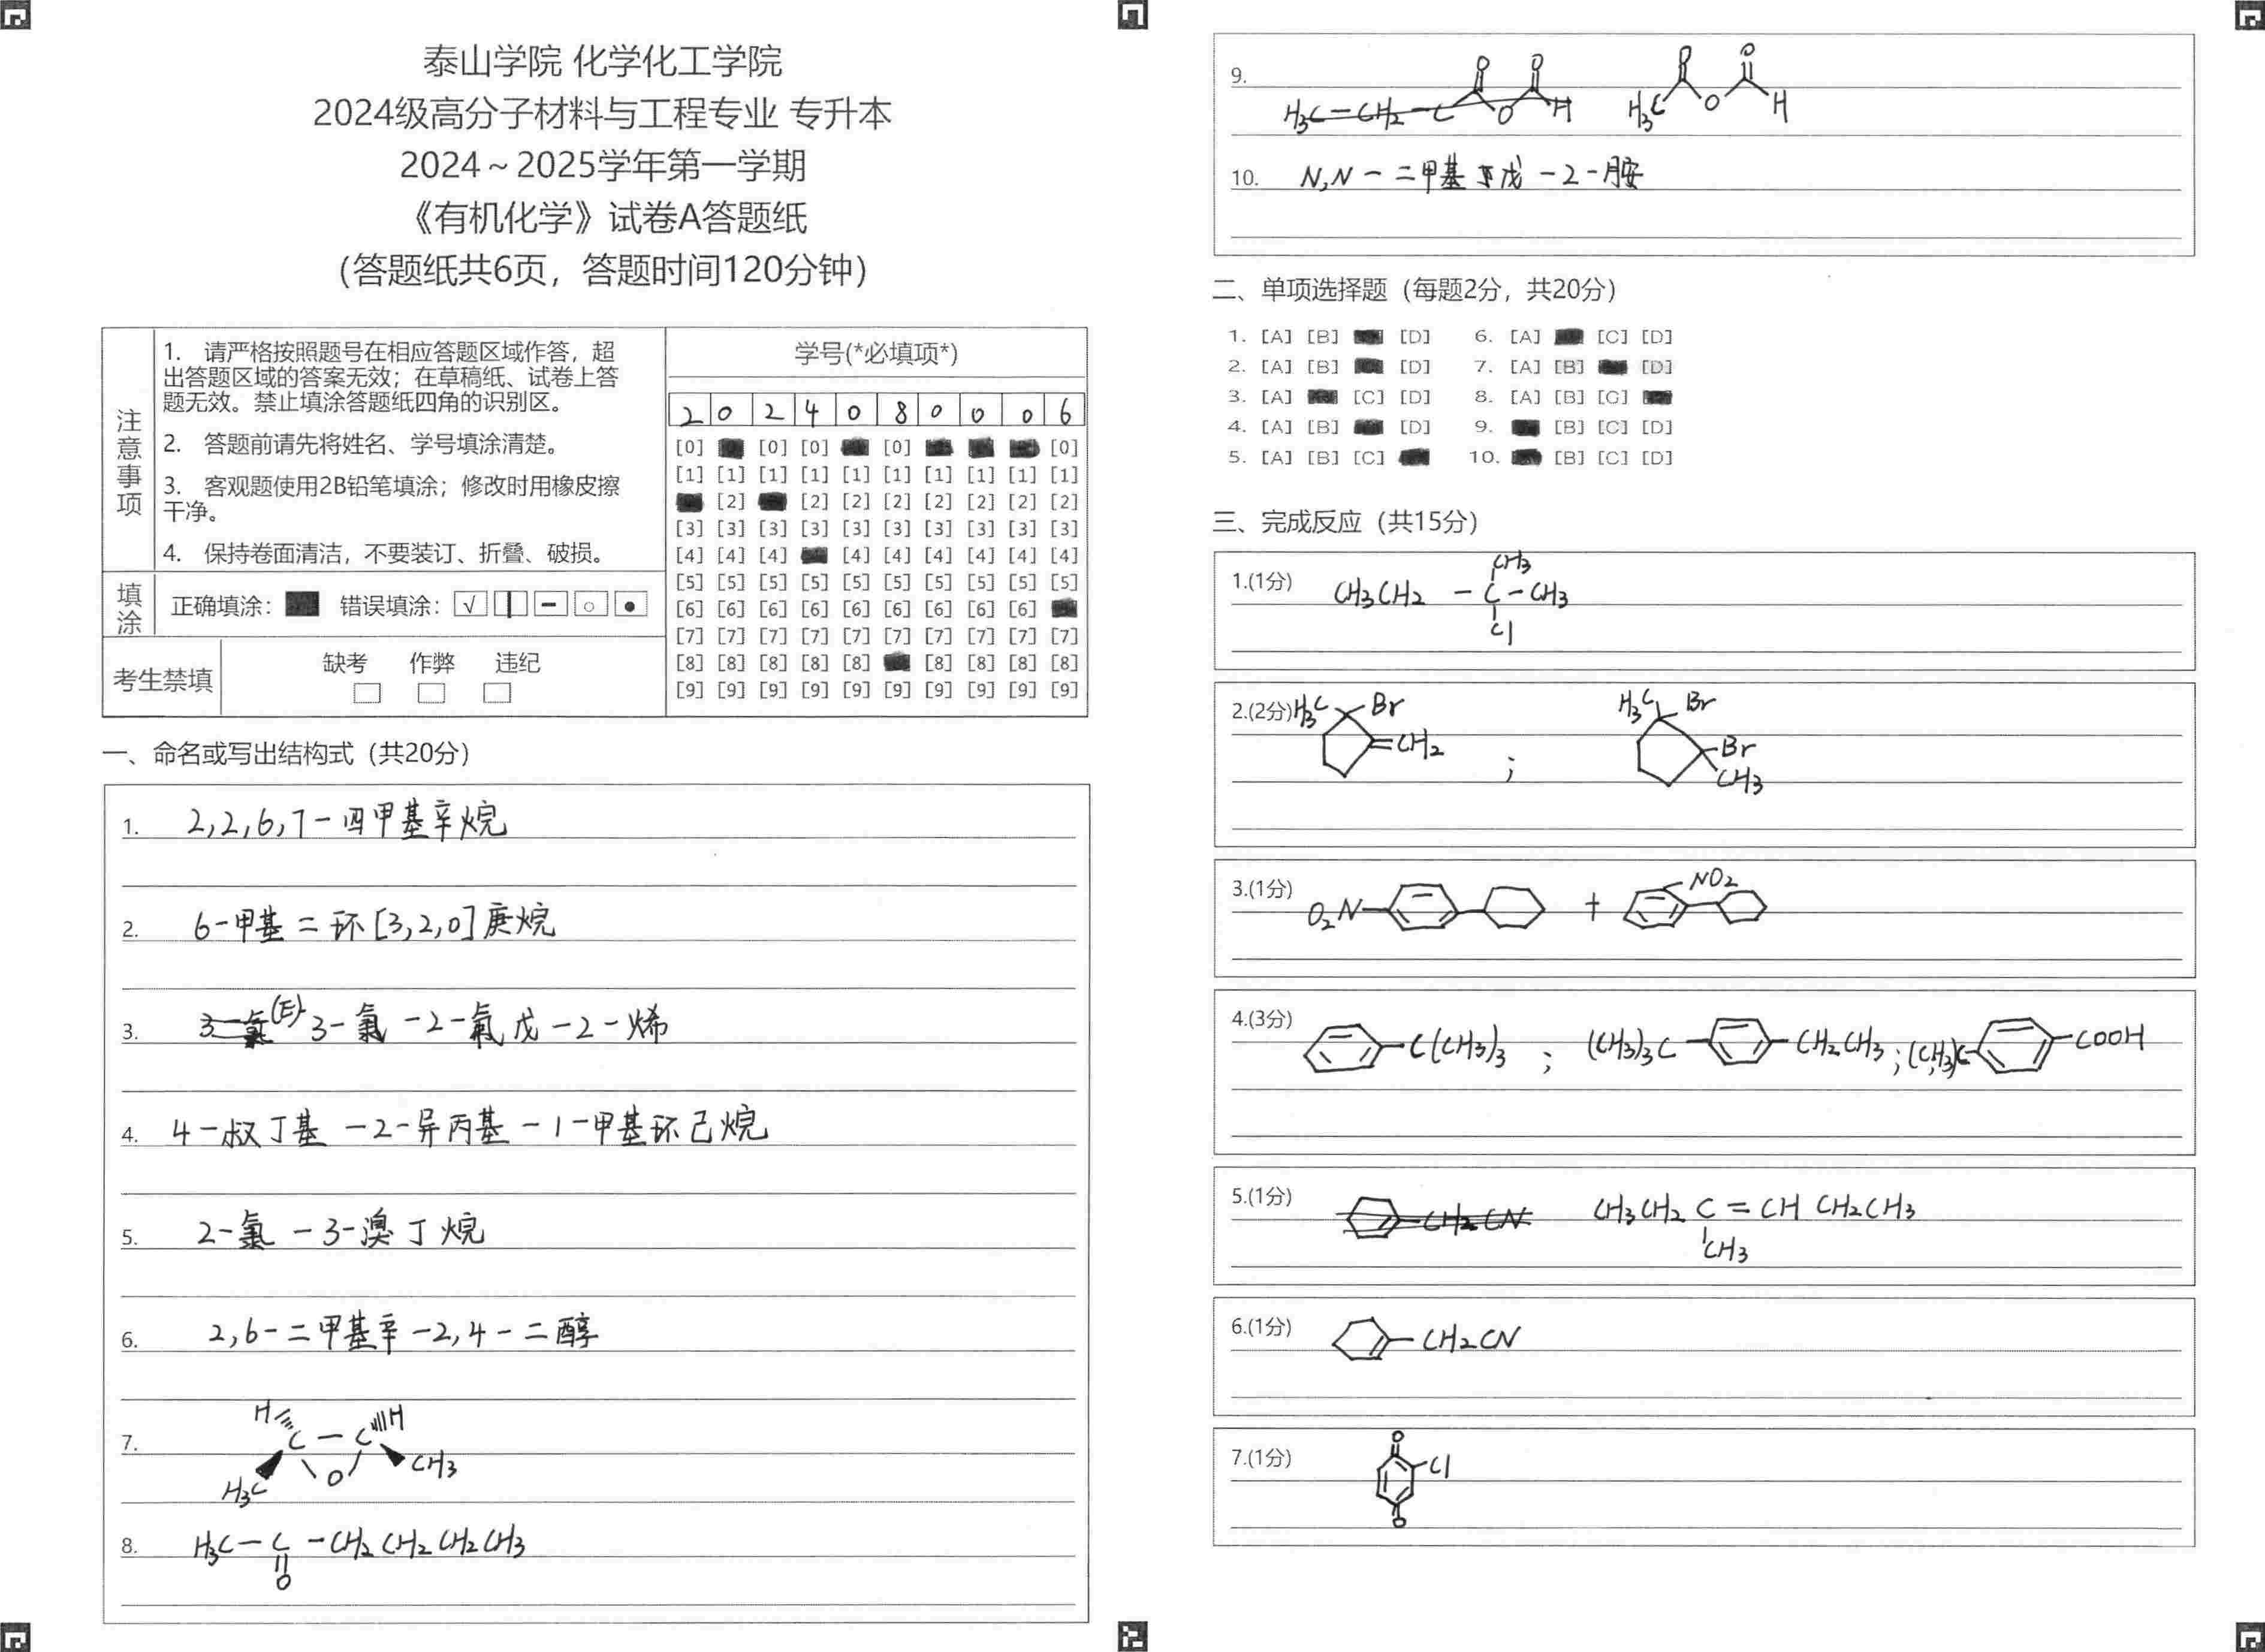 泰山学院 化学化工学院
2024级高分子材料与工程专业 专升本
2024～2025学年第一学期
《有机化学》试卷A答题纸
（答题纸共6页，答题时间120分钟）
注意事项
1. 请严格按照题号在相应答题区域作答，超
出答题区域的答案无效；在草稿纸、试卷上答
题无效。禁止填涂答题纸四角的识别区。
2. 答题前请先将姓名、学号填涂清楚。
3. 客观题使用2B铅笔填涂；修改时用橡皮擦
干净。
4. 保持卷面清洁，不要装订、折叠、破损。
填涂
正确填涂： 错误填涂：
考生禁填
缺考 作弊 违纪
学号(*必填项*)
2 0 2 4 0 8 0 0 0 6
[0] [0] [0] [0] [0]
[1] [1] [1] [1] [1] [1] [1] [1] [1] [1]
[2] [2] [2] [2] [2] [2] [2] [2]
[3] [3] [3] [3] [3] [3] [3] [3] [3] [3]
[4] [4] [4] [4] [4] [4] [4] [4] [4]
[5] [5] [5] [5] [5] [5] [5] [5] [5] [5]
[6] [6] [6] [6] [6] [6] [6] [6] [6]
[7] [7] [7] [7] [7] [7] [7] [7] [7] [7]
[8] [8] [8] [8] [8] [8] [8] [8] [8]
[9] [9] [9] [9] [9] [9] [9] [9] [9] [9]
一、命名或写出结构式（共20分）
1. 2,2,6,7-四甲基辛烷
2. 6-甲基二环[3,2,0]庚烷
3. 3-氯 (E)- 3-氯-2-氟戊-2-烯
4. 4-叔丁基-2-异丙基-1-甲基环己烷
5. 2-氯-3-溴丁烷
6. 2,6-二甲基辛-2,4-二醇
7. H C - C H
H3C O CH3
8. H3C-C-CH2CH2CH2CH3
O
9. O O O O
H3C-CH2-C O H H3C O H
10. N,N-二甲基戊-2-胺
二、单项选择题（每题2分，共20分）
1. [A] [B] [D] 6. [A] [C] [D]
2. [A] [B] [D] 7. [A] [B] [D]
3. [A] [C] [D] 8. [A] [B] [C]
4. [A] [B] [D] 9. [B] [C] [D]
5. [A] [B] [C] 10. [B] [C] [D]
三、完成反应（共15分）
1.(1分) CH3
CH3CH2-C-CH3
Cl
2.(2分) H3C Br =CH2 ; H3C Br Br CH3
3.(1分) O2N + NO2
4.(3分) C(CH3)3 ; (CH3)3C CH2CH3 ; (CH3)3C COOH
5.(1分) CH2CN CH3CH2C=CHCH2CH3
CH3
6.(1分) CH2CN
7.(1分) O Cl
O